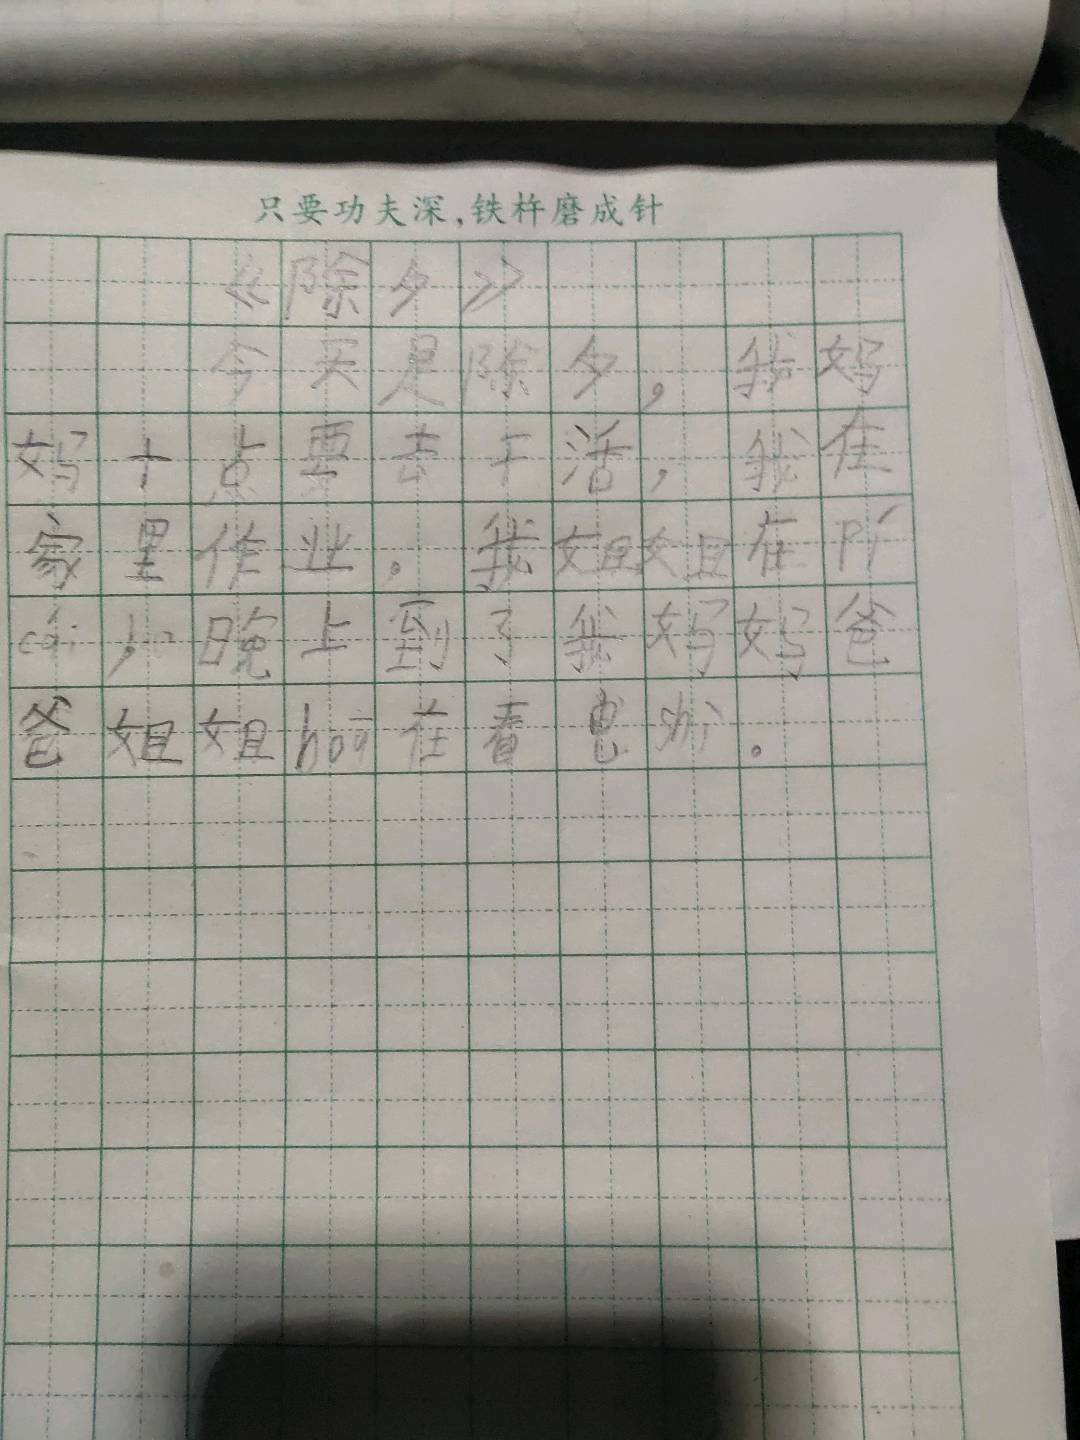 只要功夫深,铁杵磨成针
《除夕》
今天是除夕,我妈
妈十点要去干活,我在
家里作业。我姐姐在pí
cái,晚上到了我妈妈爸
爸姐姐hoū在看电shì。